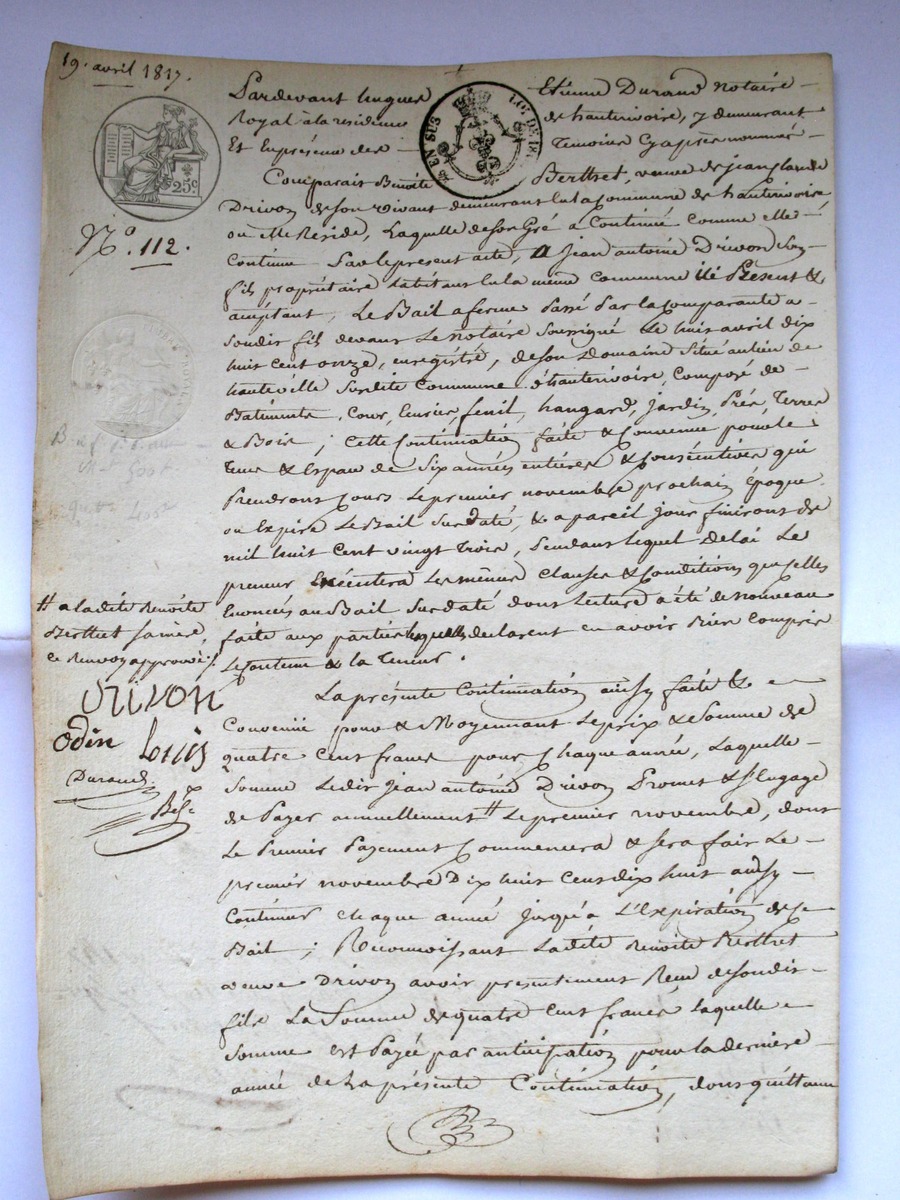 19. avril 1817.
Pardevant hugues Etienne Durand Notaire
Royal à la residence de hauterivoire, y demeurant
Et En présence des Temoins Cy après nommés
EN SUS LOI DE
25c
Comparait Benoite Berthet, veuve de jean claude
Drivon de son vivant demeurant En la Commune de hauterivoire
N.o 112.
ou Elle Réside, Laquelle de Son Gré a Continué Comme elle
Continue Par le présent acte, A Jean antoine Drivon Son
fils propriétaire habitant En la même Commune ici Présent &
acceptant, Le Bail a ferme Passé Par la Comparante a
Son dit fils devant Le Notaire Soussigné Le huit avril dix
huit Cent onze, enregistré, de Son Domaine Situé au lieu de
hauteville Surdite Commune d'hauterivoire, Composé de
Batiments, Cour, Ecurie, fenil, hangard, Jardin, Prés, Terres
& Bois ; Cette Continuation faite & Convenue pour le
Tems & Espace de Six années entières & Consécutives qui
Prendront Cours Le premier novembre prochain Epoque
ou Expire Le Bail Surdaté, & a pareil Jour finiront de
mil huit Cent vingt Trois, Pendant lequel délai Le
preneur Exécutera Les mêmes Clauses & Conditions que Celles
Enoncées au Bail Surdaté dont Lecture a été de nouveau
faite aux parties lesquelles déclarent en avoir Bien Compris
Le Contenu & la Teneur.
# a la dite Benoite
Berthet Sa mère,
ce Renvoy approuvé
Drivon
odin Louis
Durand
La présente Continuation ainsy faite &
Convenüe pour & Moyennant Le prix & Somme de
quatre Cent francs pour Chaque année, Laquelle
Somme Le dit Jean antoine Drivon Promet & S'Engage
de Payer annuellement # Le premier novembre, dont
Le Premier Payement Commencera & sera fait Le
premier novembre Dix huit Cent dix huit ainsy
Continuer Chaque année jusqu'a L'Expiration de Ce
Bail ; Reconnoissant Ladite Benoite Berthet
veuve Drivon avoir présentement Reçu de Son dit
fils La Somme de quatre Cent francs Laquelle
Somme est Payée par anticipation pour la dernière
année de La présente Continuation, dont quittance